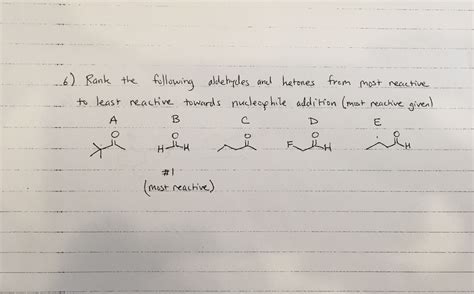 6) Rank the following aldehydes and ketones from most reactive
to least reactive towards nucleophile addition (most reactive given)
A B C D E
O O O O O
H H F H H
#1
(most reactive)